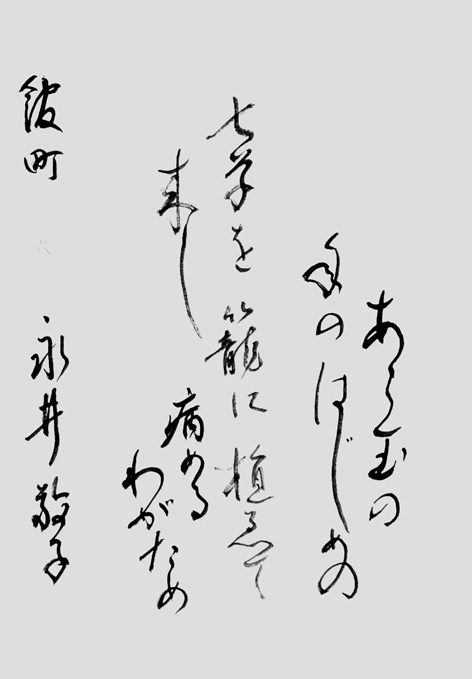 あら玉の
年のはじめの
七草を籠に植ゑて
来し
病める
わがため
館町 永井敬子